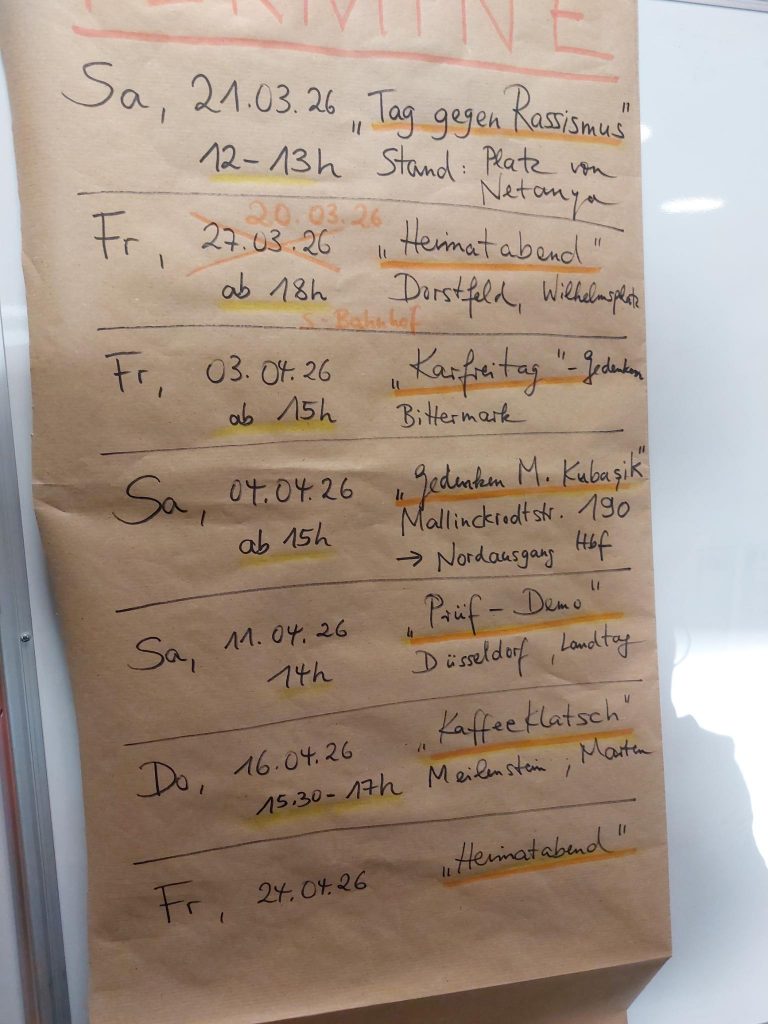 TERMINE
Sa, 21.03.26 „Tag gegen Rassismus"
12-13h Stand: Platz von
Netanya
20.03.26
Fr, 27.03.26 „Heimatabend"
ab 18h Dorstfeld, Wilhelmsplatz
S-Bahnhof
Fr, 03.04.26 „Karfreitag"-Gedenken
ab 15h Bittermark
Sa, 04.04.26 „Gedenken M. Kubaşik"
ab 15h Mallinckrodtstr. 190
→ Nordausgang Hbf
Sa, 11.04.26 „Prüf-Demo"
14h Düsseldorf, Landtag
Do, 16.04.26 „Kaffeeklatsch"
15.30-17h Meilenstein, Marten
Fr, 24.04.26 „Heimatabend"